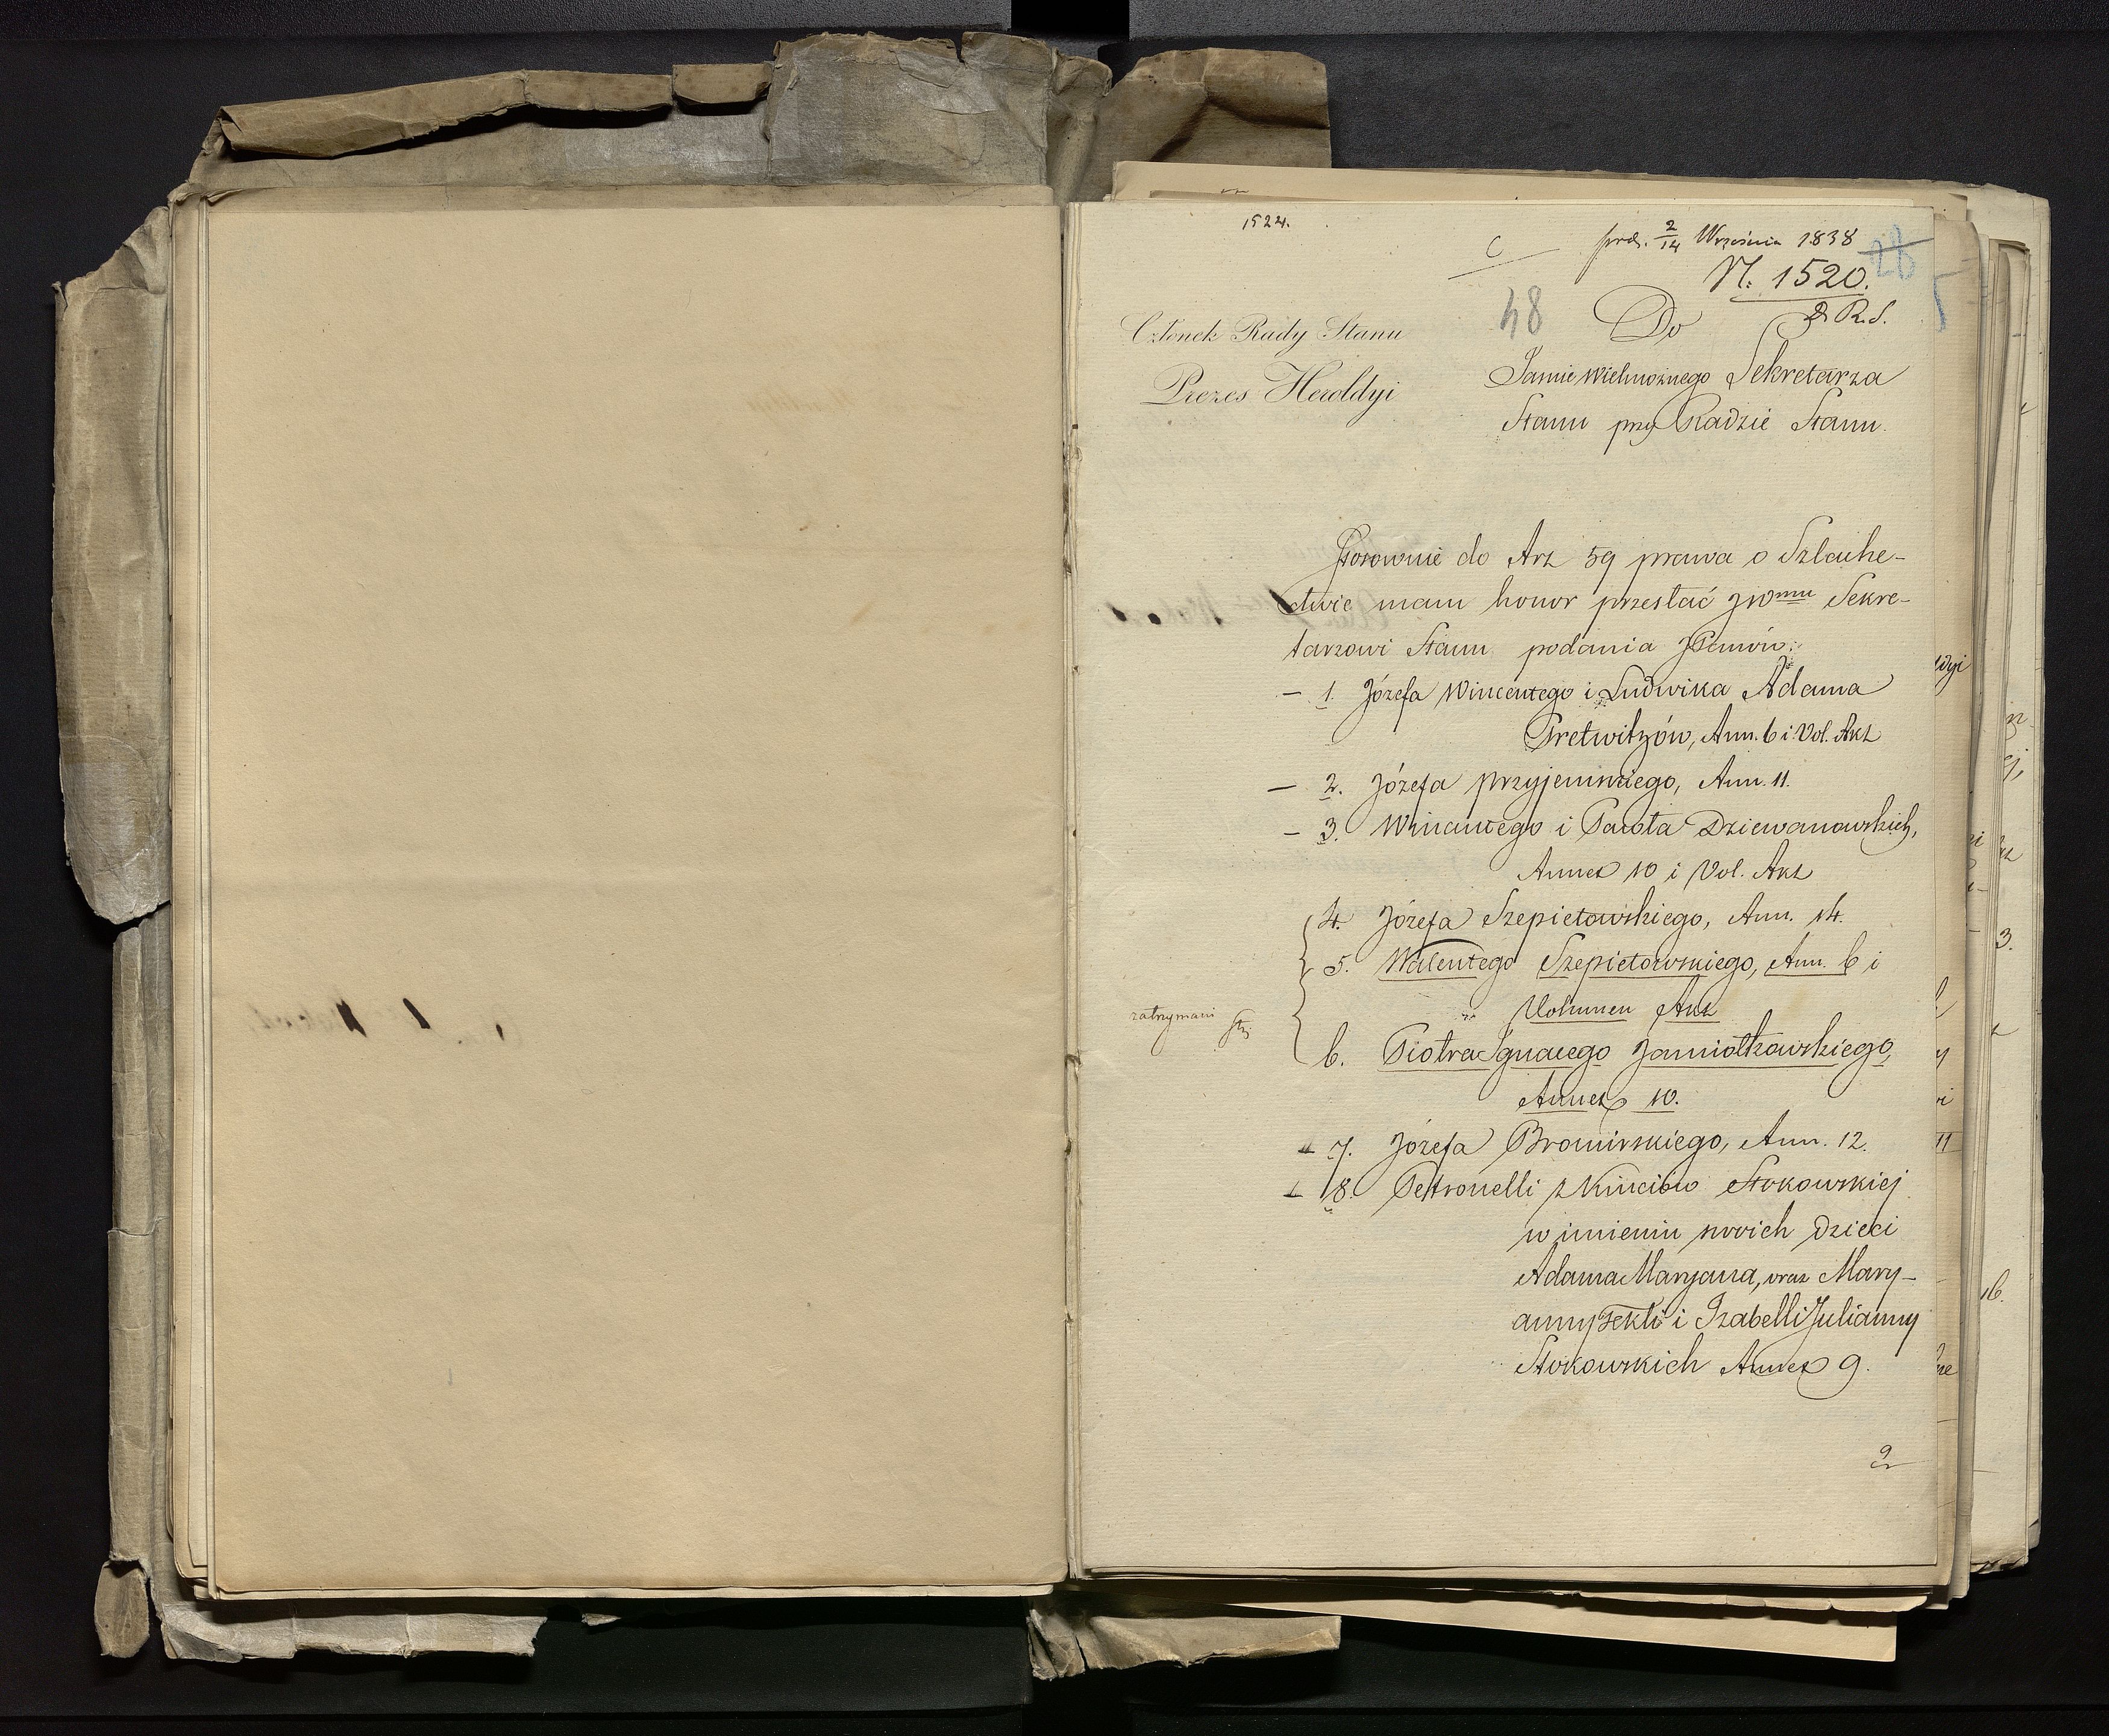 1524.
C
prds. 2/14 Września 1838
28
N. 1520.
D. R. S.
48
Członek Rady Stanu
Prezes Heroldyi
Do
JaśnieWielmożnego Sekretarza
Stanu przy Radzie Stanu.
Stosownie do Art 59 prawa o Szlache-
ctwie mam honor przesłać JWmu Sekre-
tarzowi Stanu podania JPanów:
– 1. Józefa Wincentego i Ludwika Adama
Pretwitzów, Ann. 6 i Vol. Akt
– 2. Józefa Przyjemskiego, Ann. 11.
– 3. Wincentego i Pawła Dziewanowskich,
Annex 10 i Vol. Akt
4. Józefa Szepietowskiego, Ann. 14.
5. Walentego Szepietowskiego, Ann. 6 i
Volumen Akt
zatrzymani
6. Piotra Ignacego Jamiołkowskiego,
Annex 10.
7. Józefa Bromirskiego, Ann. 12.
8. Petronelli z Stokowskiej
w imieniu swoich Dzieci
Adama Maryana, oraz Mary-
anny Tekli i Izabelli Julianny
Stokowskich Annex 9.
9